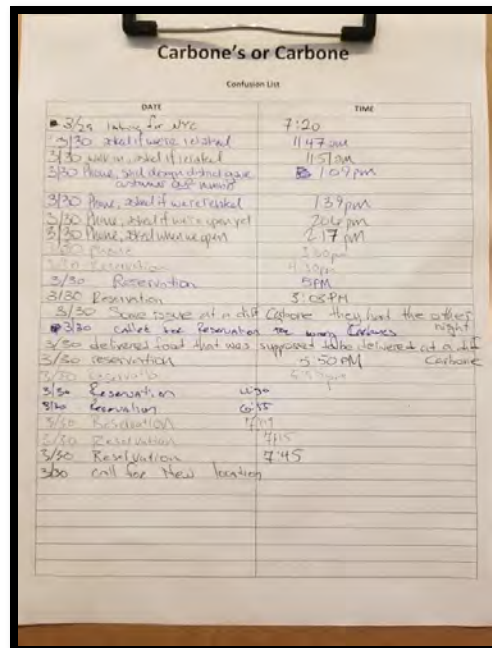 Carbone's or Carbone
Confusion List
DATE TIME
3/29 for NYC 7:20
3/30 asked if were related 11 47 am
3/30 walk in, asked if related 11 51 am
3/30 Phone, said design district gave 1:09 pm
customer our number
3/30 Phone, asked if we're related 1 39 pm
3/30 Phone, asked if we're open yet 2 06 pm
3/30 Phone, asked when we open 2 17 pm
3/30 Phone 3:00pm
3/30 Reservation 4:30pm
3/30 Reservation 5PM
3/30 Reservation 5:08PM
3/30 Same issue at a diff Carbone they had the other
night
3/30 called for Reservation wrong Carbones
3/30 delivered food that was supposed to be delivered at a diff
Carbone
3/30 reservation 5:50PM
3/30
3/30 Reservation
3/30 Reservation 6:55
3/30 Reservation
3/30 Reservation 7:15
3/30 Reservation 7:45
3/30 call for New location